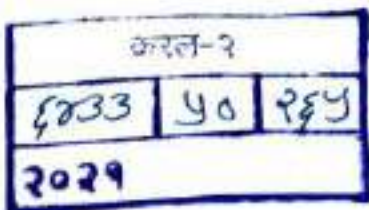 करल-२
६४३३ ५० २६५
२०२१